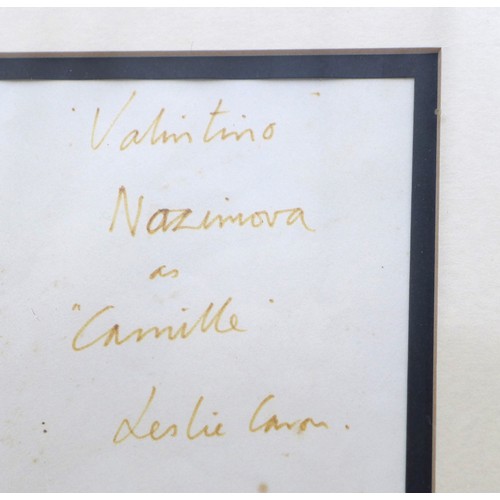 "Valintino"
Nazimova
as
"Camille"
Leslie Caron.